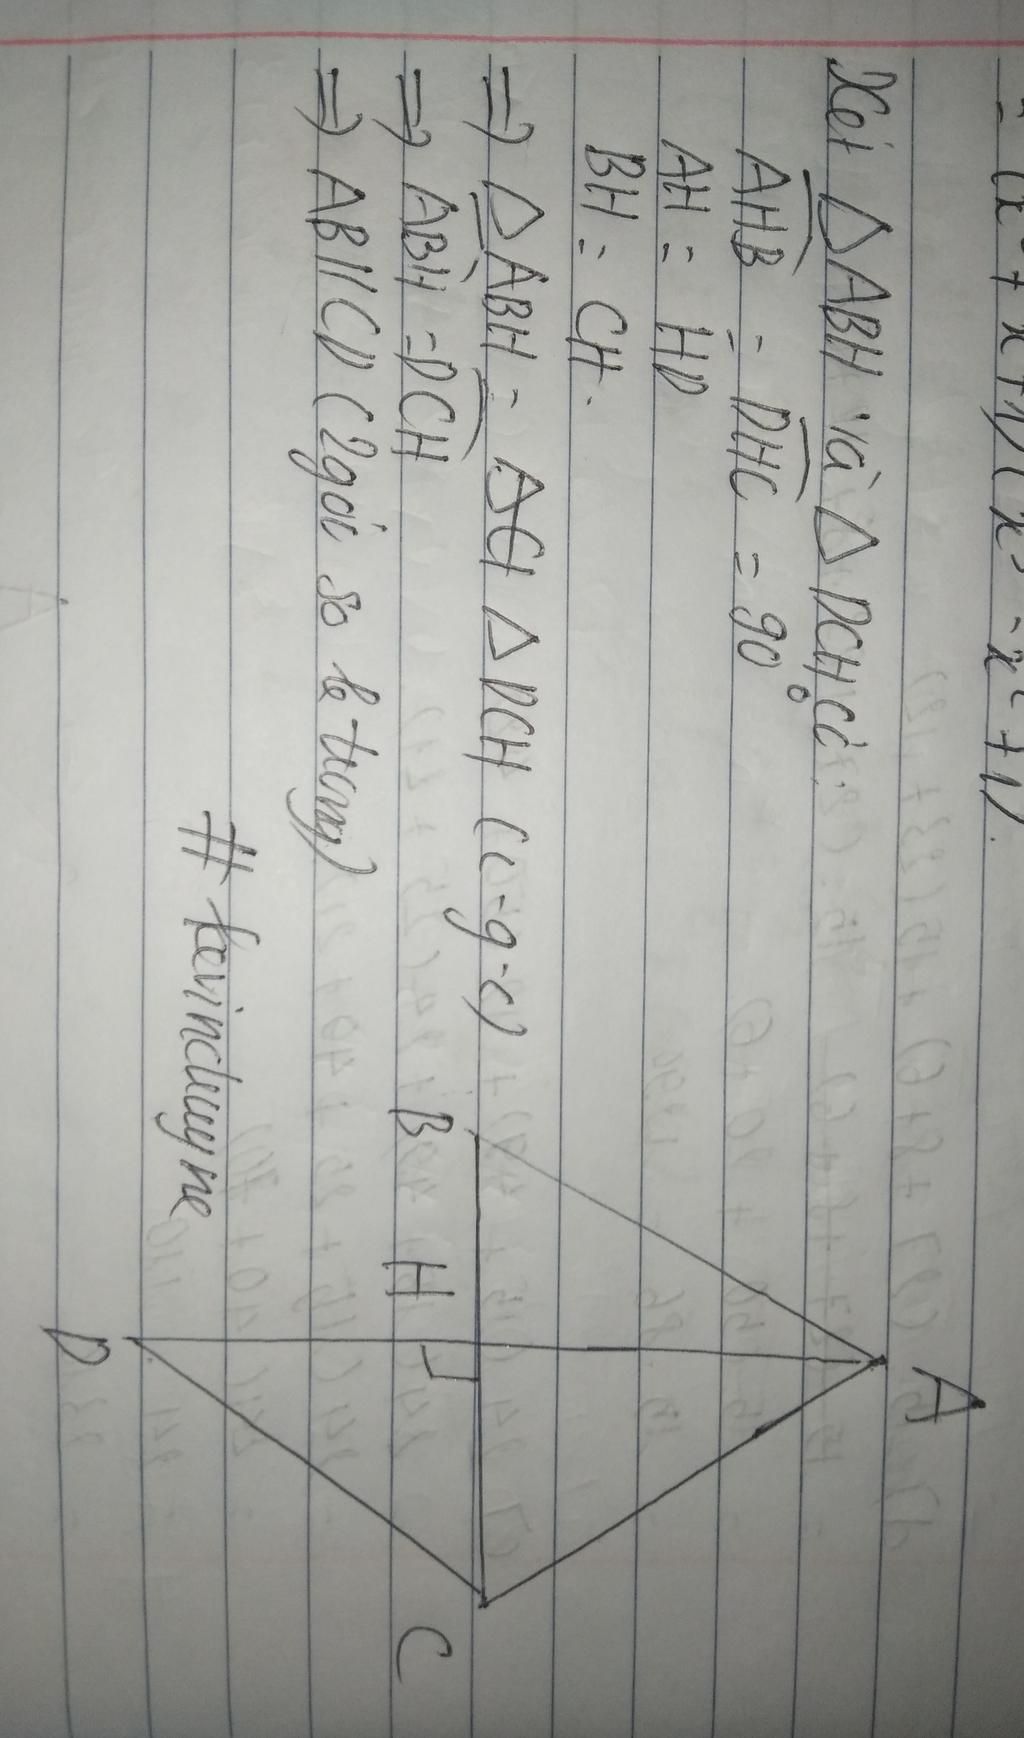 = (x² + x + 1)(x³ - x² + 1).
Xét △ABH và △DCH có:
AHB = DHC = 90°
AH = HD
BH = CH.
=> △ABH = △DCH (c-g-c)
=> ABH = DCH
=> AB // CD (2 góc so le trong)
# kevinchuyne
A
B
H
C
D